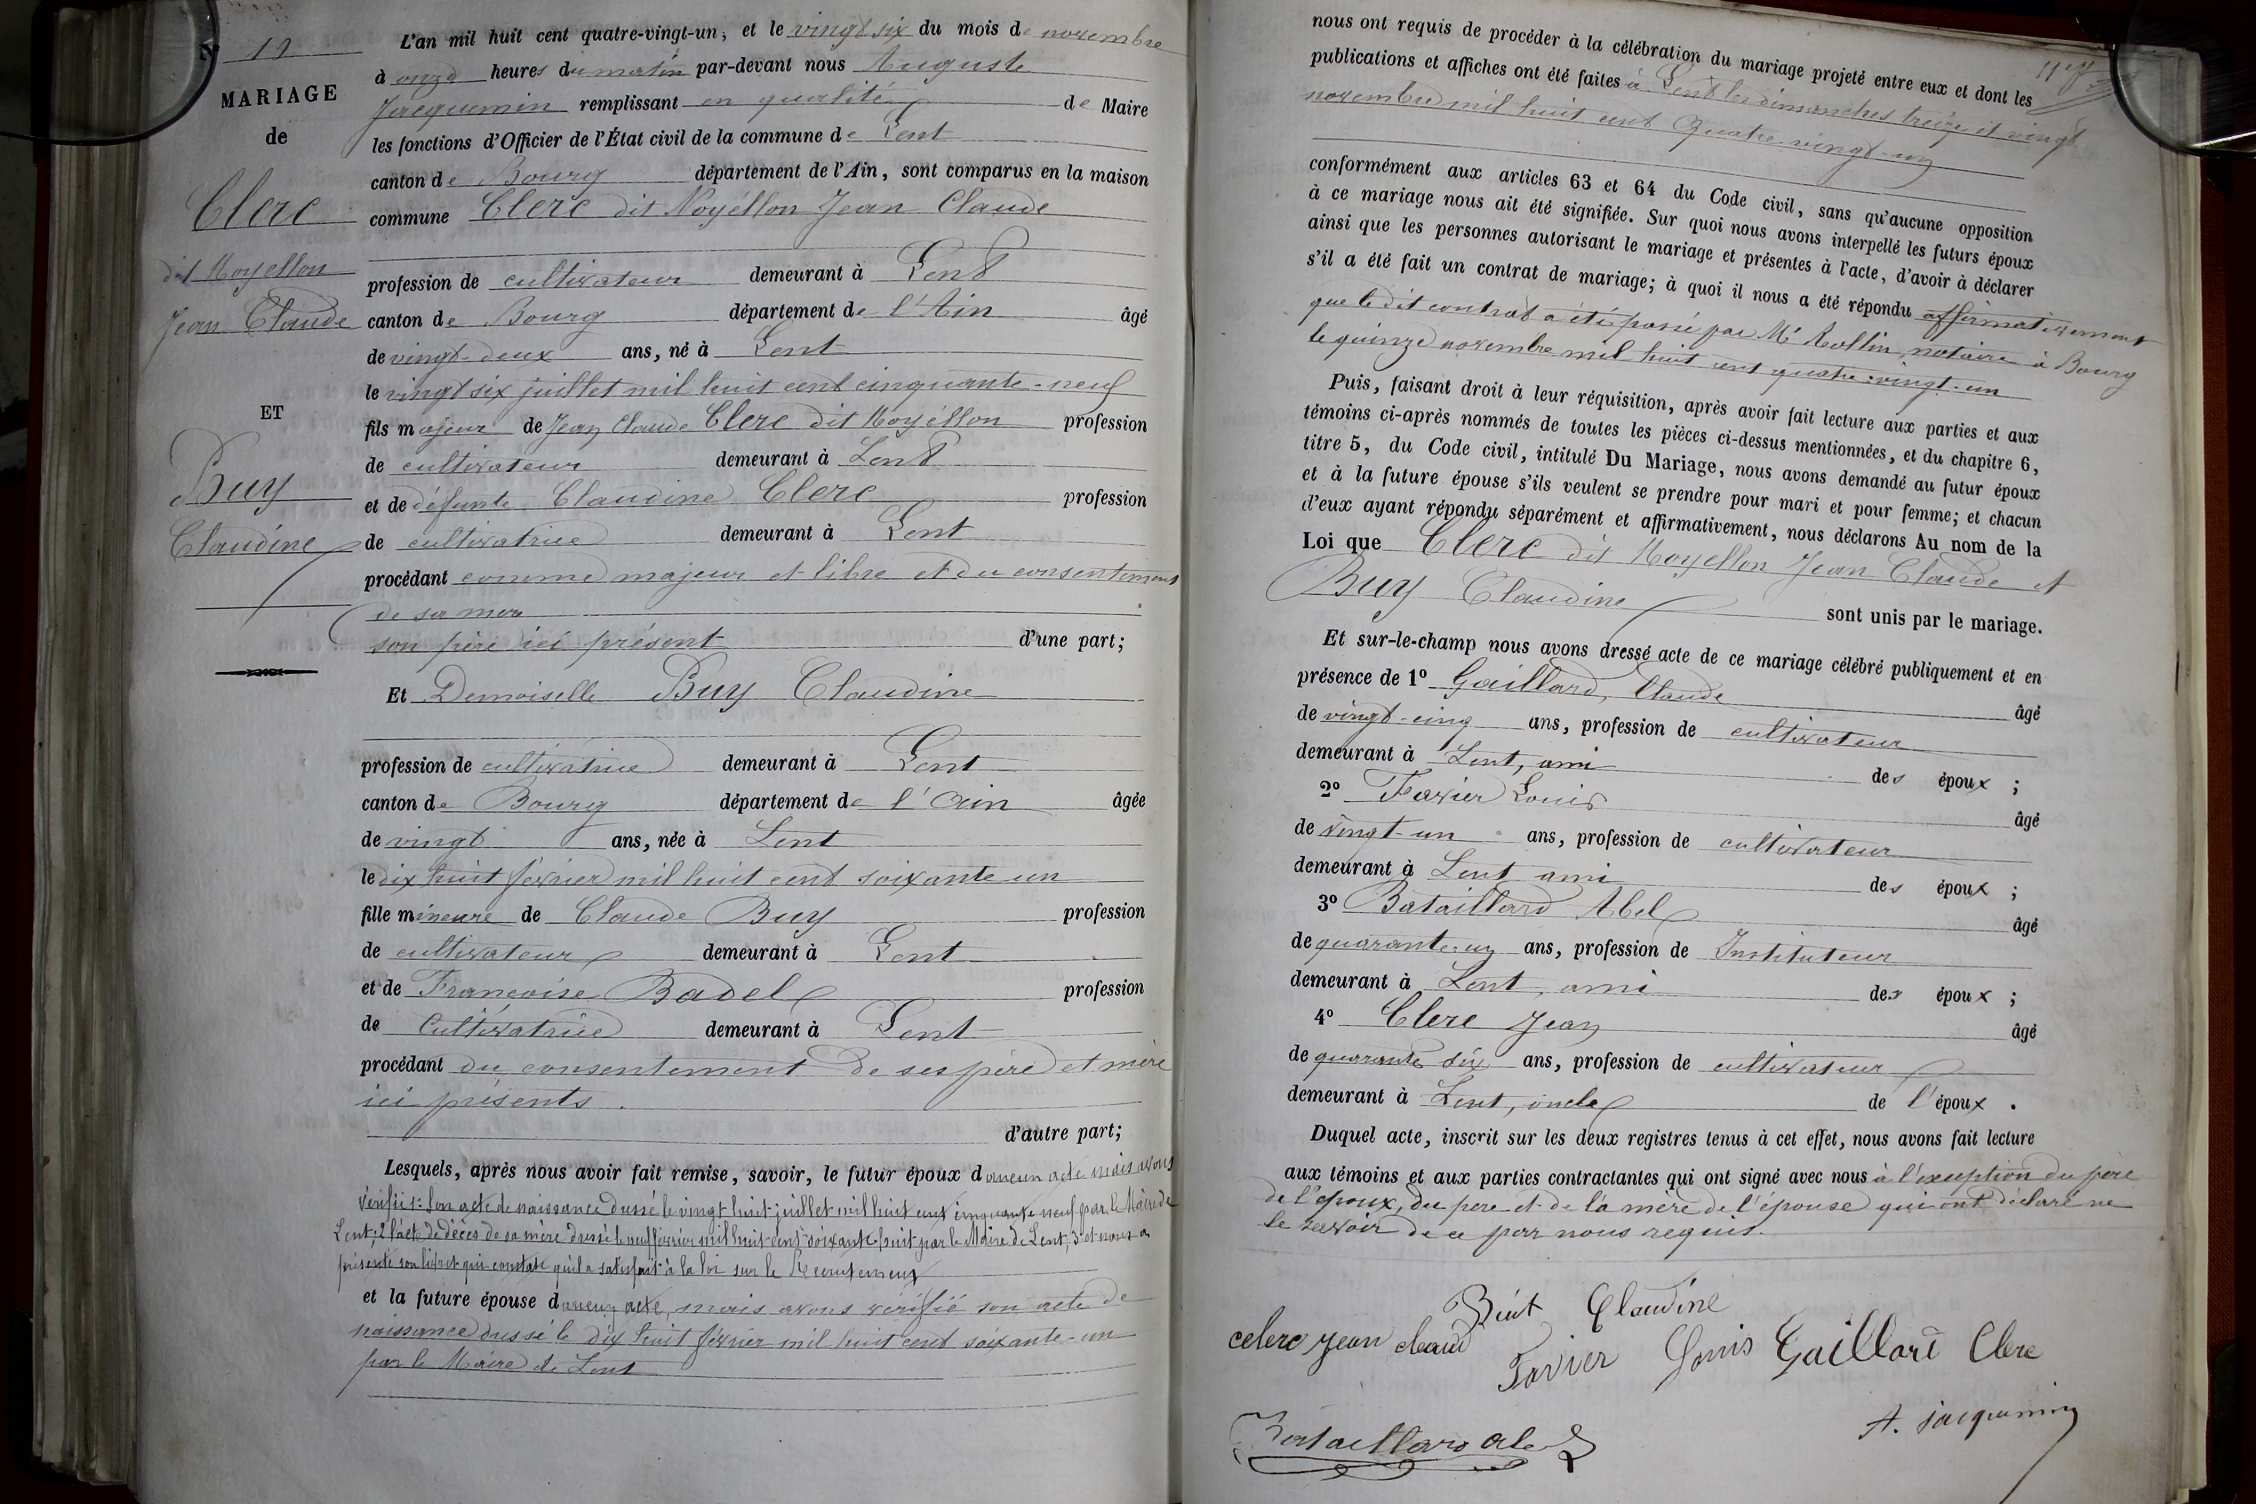 MARIAGE
de
Clerc
dit Moyellon
Jean Claude
ET
Buy
Claudine
L'an mil huit cent quatre-vingt-un, et le vingt six du mois de novembre
à onze heures du matin par-devant nous Auguste
Jacquemin remplissant en qualité de Maire
les fonctions d'Officier de l'État civil de la commune de Lent
canton de Bourg département de l'Ain, sont comparus en la maison
commune Clerc dit Moyéllon Jean Claude
profession de cultivateur demeurant à Lent
canton de Bourg département de l'Ain âgé
de vingt-deux ans, né à Lent
le vingt six juillet mil huit cent cinquante-neuf
fils majeur de Jean Claude Clerc dit Moyéllon profession
de cultivateur demeurant à Lent
et de défunte Claudine Clerc profession
de cultivatrice demeurant à Lent
procédant comme majeur et libre et du consentement
de sa mère
son père ici présent d'une part;
Et Demoiselle Buy Claudine
profession de cultivatrice demeurant à Lent
canton de Bourg département de l'Ain âgée
de vingt ans, née à Lent
le dix huit février mil huit cent soixante un
fille mineure de Claude Buy profession
de cultivateur demeurant à Lent
et de Françoise Badel profession
de Cultivatrice demeurant à Lent
procédant du consentement de ses père et mère
ici présents.
d'autre part;
Lesquels, après nous avoir fait remise, savoir, le futur époux d'aucun acte mais avons
vérifié: son acte de naissance dressé le vingt huit juillet mil huit cent cinquante neuf par le Maire de
Lent; 2° l'acte de décès de sa mère dressé le neuf février mil huit cent soixante huit par le Maire de Lent, 3° et nous a
présenté son livret qui constate qu'il a satisfait à la loi sur le Recrutement
et la future épouse d'aucun acte, mais avons vérifié son acte de
naissance dressé le dix huit février mil huit cent soixante-un
par le Maire de Lent
nous ont requis de procéder à la célébration du mariage projeté entre eux et dont les
publications et affiches ont été faites à Lent les dimanches treize et vingt
novembre mil huit cent quatre-vingt-un
conformément aux articles 63 et 64 du Code civil, sans qu'aucune opposition
à ce mariage nous ait été signifiée. Sur quoi nous avons interpellé les futurs époux
ainsi que les personnes autorisant le mariage et présentes à l'acte, d'avoir à déclarer
s'il a été fait un contrat de mariage; à quoi il nous a été répondu affirmativement
que le dit contrat a été passé par Me Rollin, notaire à Bourg
le quinze novembre mil huit cent quatre-vingt-un
Puis, faisant droit à leur réquisition, après avoir fait lecture aux parties et aux
témoins ci-après nommés de toutes les pièces ci-dessus mentionnées, et du chapitre 6,
titre 5, du Code civil, intitulé Du Mariage, nous avons demandé au futur époux
et à la future épouse s'ils veulent se prendre pour mari et pour femme; et chacun
d'eux ayant répondu séparément et affirmativement, nous déclarons Au nom de la
Loi que Clerc dit Moyellon Jean Claude et
Buy Claudine
sont unis par le mariage.
Et sur-le-champ nous avons dressé acte de ce mariage célébré publiquement et en
présence de 1° Gaillard, Claude âgé
de vingt-cinq ans, profession de cultivateur
demeurant à Lent, ami des époux ;
2° Favier Louis âgé
de vingt-un ans, profession de cultivateur
demeurant à Lent ami des époux ;
3° Bataillard Abel âgé
de quarante-un ans, profession de Instituteur
demeurant à Lent, ami des époux ;
4° Clerc Jean âgé
de quarante six ans, profession de cultivateur
demeurant à Lent, oncle de l'époux .
Duquel acte, inscrit sur les deux registres tenus à cet effet, nous avons fait lecture
aux témoins et aux parties contractantes qui ont signé avec nous à l'exception du père
de l'époux, du père et de la mère de l'épouse qui ont déclaré ne
le savoir de ce par nous requis.
Buit Claudine
celerc jean claud
Favier Louis Gaillard Clerc
Bataillard Abel
A. Jacquemin